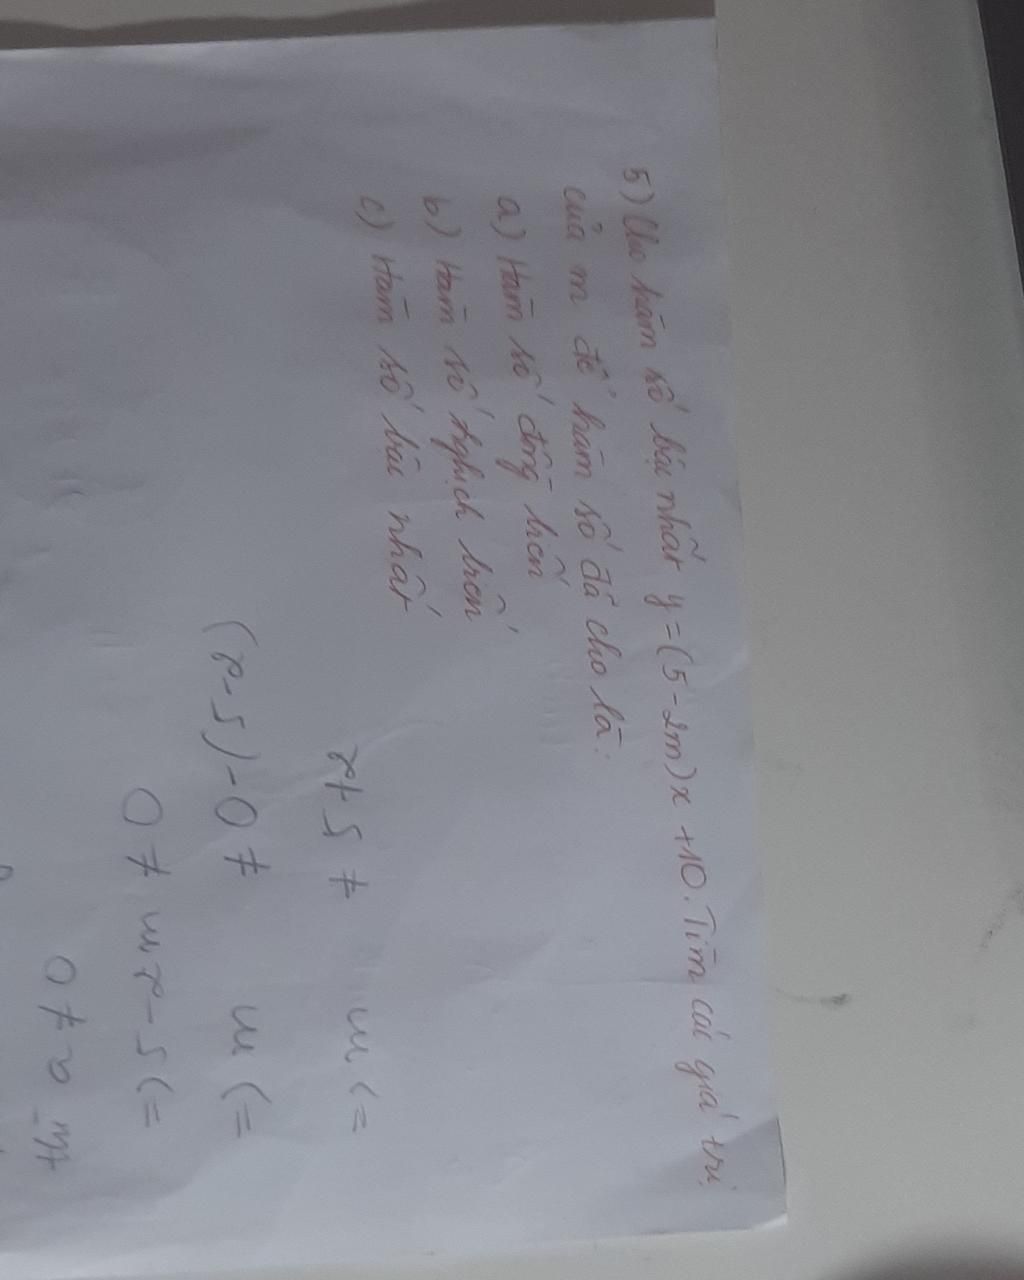 5) Cho hàm số bậc nhất y = (5 - 2m)x + 10. Tìm các giá trị
của m để hàm số đã cho là:
a) Hàm số đồng biến
b) Hàm số nghịch biến
c) Hàm số bậc nhất
a ≠ 0
=) 5 - 2m ≠ 0
=) m ≠ 0 - (5 - 2)
=) m ≠ 5 + 2